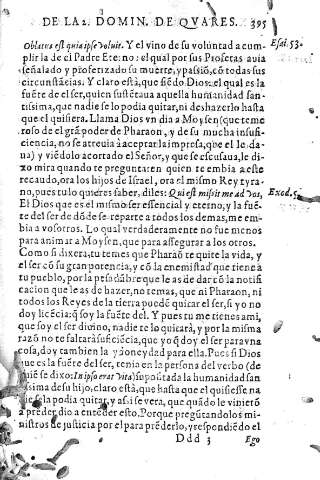 DE LA 2. DOMIN. DE QVARES. 395
Oblatus est quia ipse voluit. Y el vino de su voluntad a cum- Esai. 53.
plir la de el Padre Eterno: el qual por sus Profetas auia
señalado y profetizado su muerte, y passiõ, cõ todas sus
circunstãcias. Y claro estâ, que siẽdo Dios el qual es la
fuẽte de el ser, quien sustẽtaua aquella humanidad san-
tissima, que nadie se lo podia quitar, ni deshazerlo hasta
que el quisiera. Llama Dios vn dia a Moysen (que teme
roso de el grã poder de Pharaon, y de su mucha insufi-
ciencia, no se atreuia â aceptar la impresa, que el le da-
ua) y viẽdolo acortado el Señor, y que se escusaua, le di-
xo mira quando te preguntaren quien te embia a este
recaudo, ora los hijos de Israel, ora el mismo Rey tyra-
no, pues tu lo quieres saber, diles: Qui est misit me ad vos, Exod. 5.
El Dios que es el mismo ser essencial y eterno, y la fuẽ-
te del ser de dõde se reparte a todos los demas, me em-
bia a vosotros. Lo qual verdaderamente no fue menos
para animar a Moysen, que para assegurar a los otros.
Como si dixera, tu temes que Pharaõ te quite la vida, y
el ser cõ su gran potencia, y cõ la enemistad que tiene â
tu pueblo, por la pesadũbre que le as de dar cõ la notifi
cacion que le as de hazer, no temas, que ni Pharaon, ni
todos los Reyes de la tierra puedẽ quitar el ser, si yo no
doy licẽcia: q̃ soy la fuẽte del. Y pues tu me tienes ami,
que soy el ser diuino, nadie te lo quitarâ, y por la misma
razõ no te faltarâ suficiẽcia, que yo q̃ doy el ser para vna
cosa, doy tambien la ydoneydad para ella. Pues si Dios
que es la fuẽte del ser, tenia en la persona del verbo (de
quiẽ se dixo: In ipso erat vita) supositada la humanidad san
tissima de su hijo, claro estâ, que hasta que el quisiesse na
die se la podia quitar, y assi se vera, que quãdo le vinierõ
a prẽder dio a entẽder esto. Porque pregũtandolos mi-
nistros de justicia por el para prẽderlo, y respondiẽdo el
Ddd 3 Ego